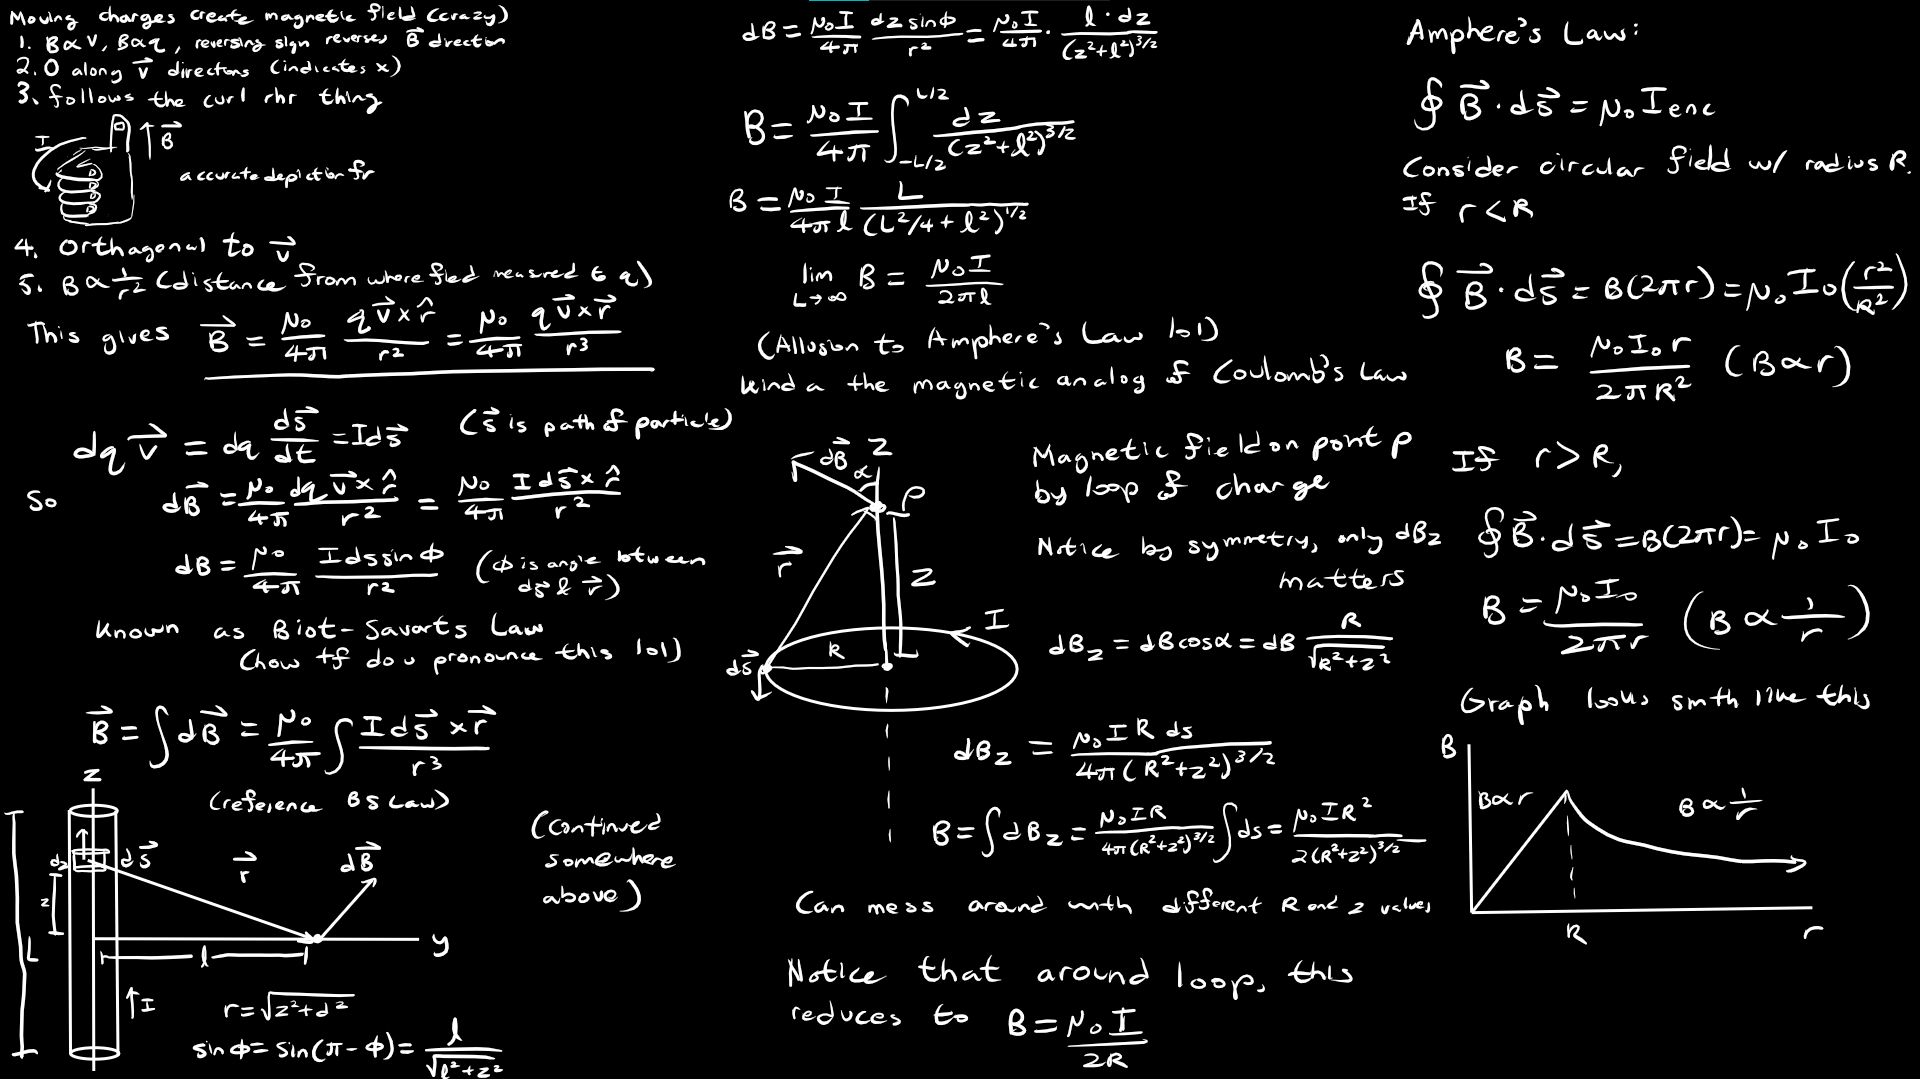 Moving charges create magnetic field (crazy)
1. B∝V, B∝q, reversing sign reverses B⃗ direction
2. 0 along v⃗ directions (indicates x)
3. follows the curl rhr thing
I
B⃗
accurate depiction fr
4. Orthagonal to v⃗
5. B∝1/r² (distance from where fied measured to q)
This gives B⃗ = μ₀/4π qv⃗×r̂/r² = μ₀/4π qv⃗×r⃗/r³
dq v⃗ = dq ds⃗/dt = Ids⃗ (s⃗ is path of particle)
So dB⃗ = μ₀/4π dq v⃗×r̂/r² = μ₀/4π I ds⃗×r̂/r²
dB = μ₀/4π I ds sin φ/r² (φ is angle between ds⃗ & r⃗)
Known as Biot-Savarts Law
(how tf do u pronounce this lol)
B⃗ = ∫dB⃗ = μ₀/4π ∫ I ds⃗ × r⃗/r³
(reference BS Law)
z
dz
ds⃗
r⃗
dB⃗
z
L
l
y
↑I
r = √(z²+d²)
sin φ = sin(π-φ) = l/√(l²+z²)
(continued
somewhere
above)
dB = μ₀I/4π dz sin φ/r² = μ₀I/4π · l·dz/(z²+l²)^3/2
B = μ₀I/4π ∫_{-L/2}^{L/2} dz/(z²+l²)^3/2
B = μ₀I/4πl L/(L²/4+l²)^1/2
lim L→∞ B = μ₀I/2πl
(Allusion to Amphere's Law lol)
kinda the magnetic analog of Coulomb's Law
dB⃗
α
z
P
r⃗
z
I
R
ds⃗
Magnetic field on point p
by loop of charge
Notice by symmetry, only dBz
matters
dBz = dBcosα = dB R/√(R²+z²)
dBz = μ₀IR ds/4π(R²+z²)^3/2
B = ∫dBz = μ₀IR/4π(R²+z²)^3/2 ∫ds = μ₀IR²/2(R²+z²)^3/2
Can mess around with different R and z values
Notice that around loop, this
reduces to B = μ₀I/2R
Amphere's Law:
∮B⃗·ds⃗ = μ₀Ienc
Consider circular field w/ radius R.
If r<R
∮B⃗·ds⃗ = B(2πr) = μ₀I₀(r²/R²)
B = μ₀I₀r/2πR² (B∝r)
If r>R,
∮B⃗·ds⃗ = B(2πr) = μ₀I₀
B = μ₀I₀/2πr (B∝1/r)
Graph looks smth like this
B
B∝r
B∝1/r
R
r